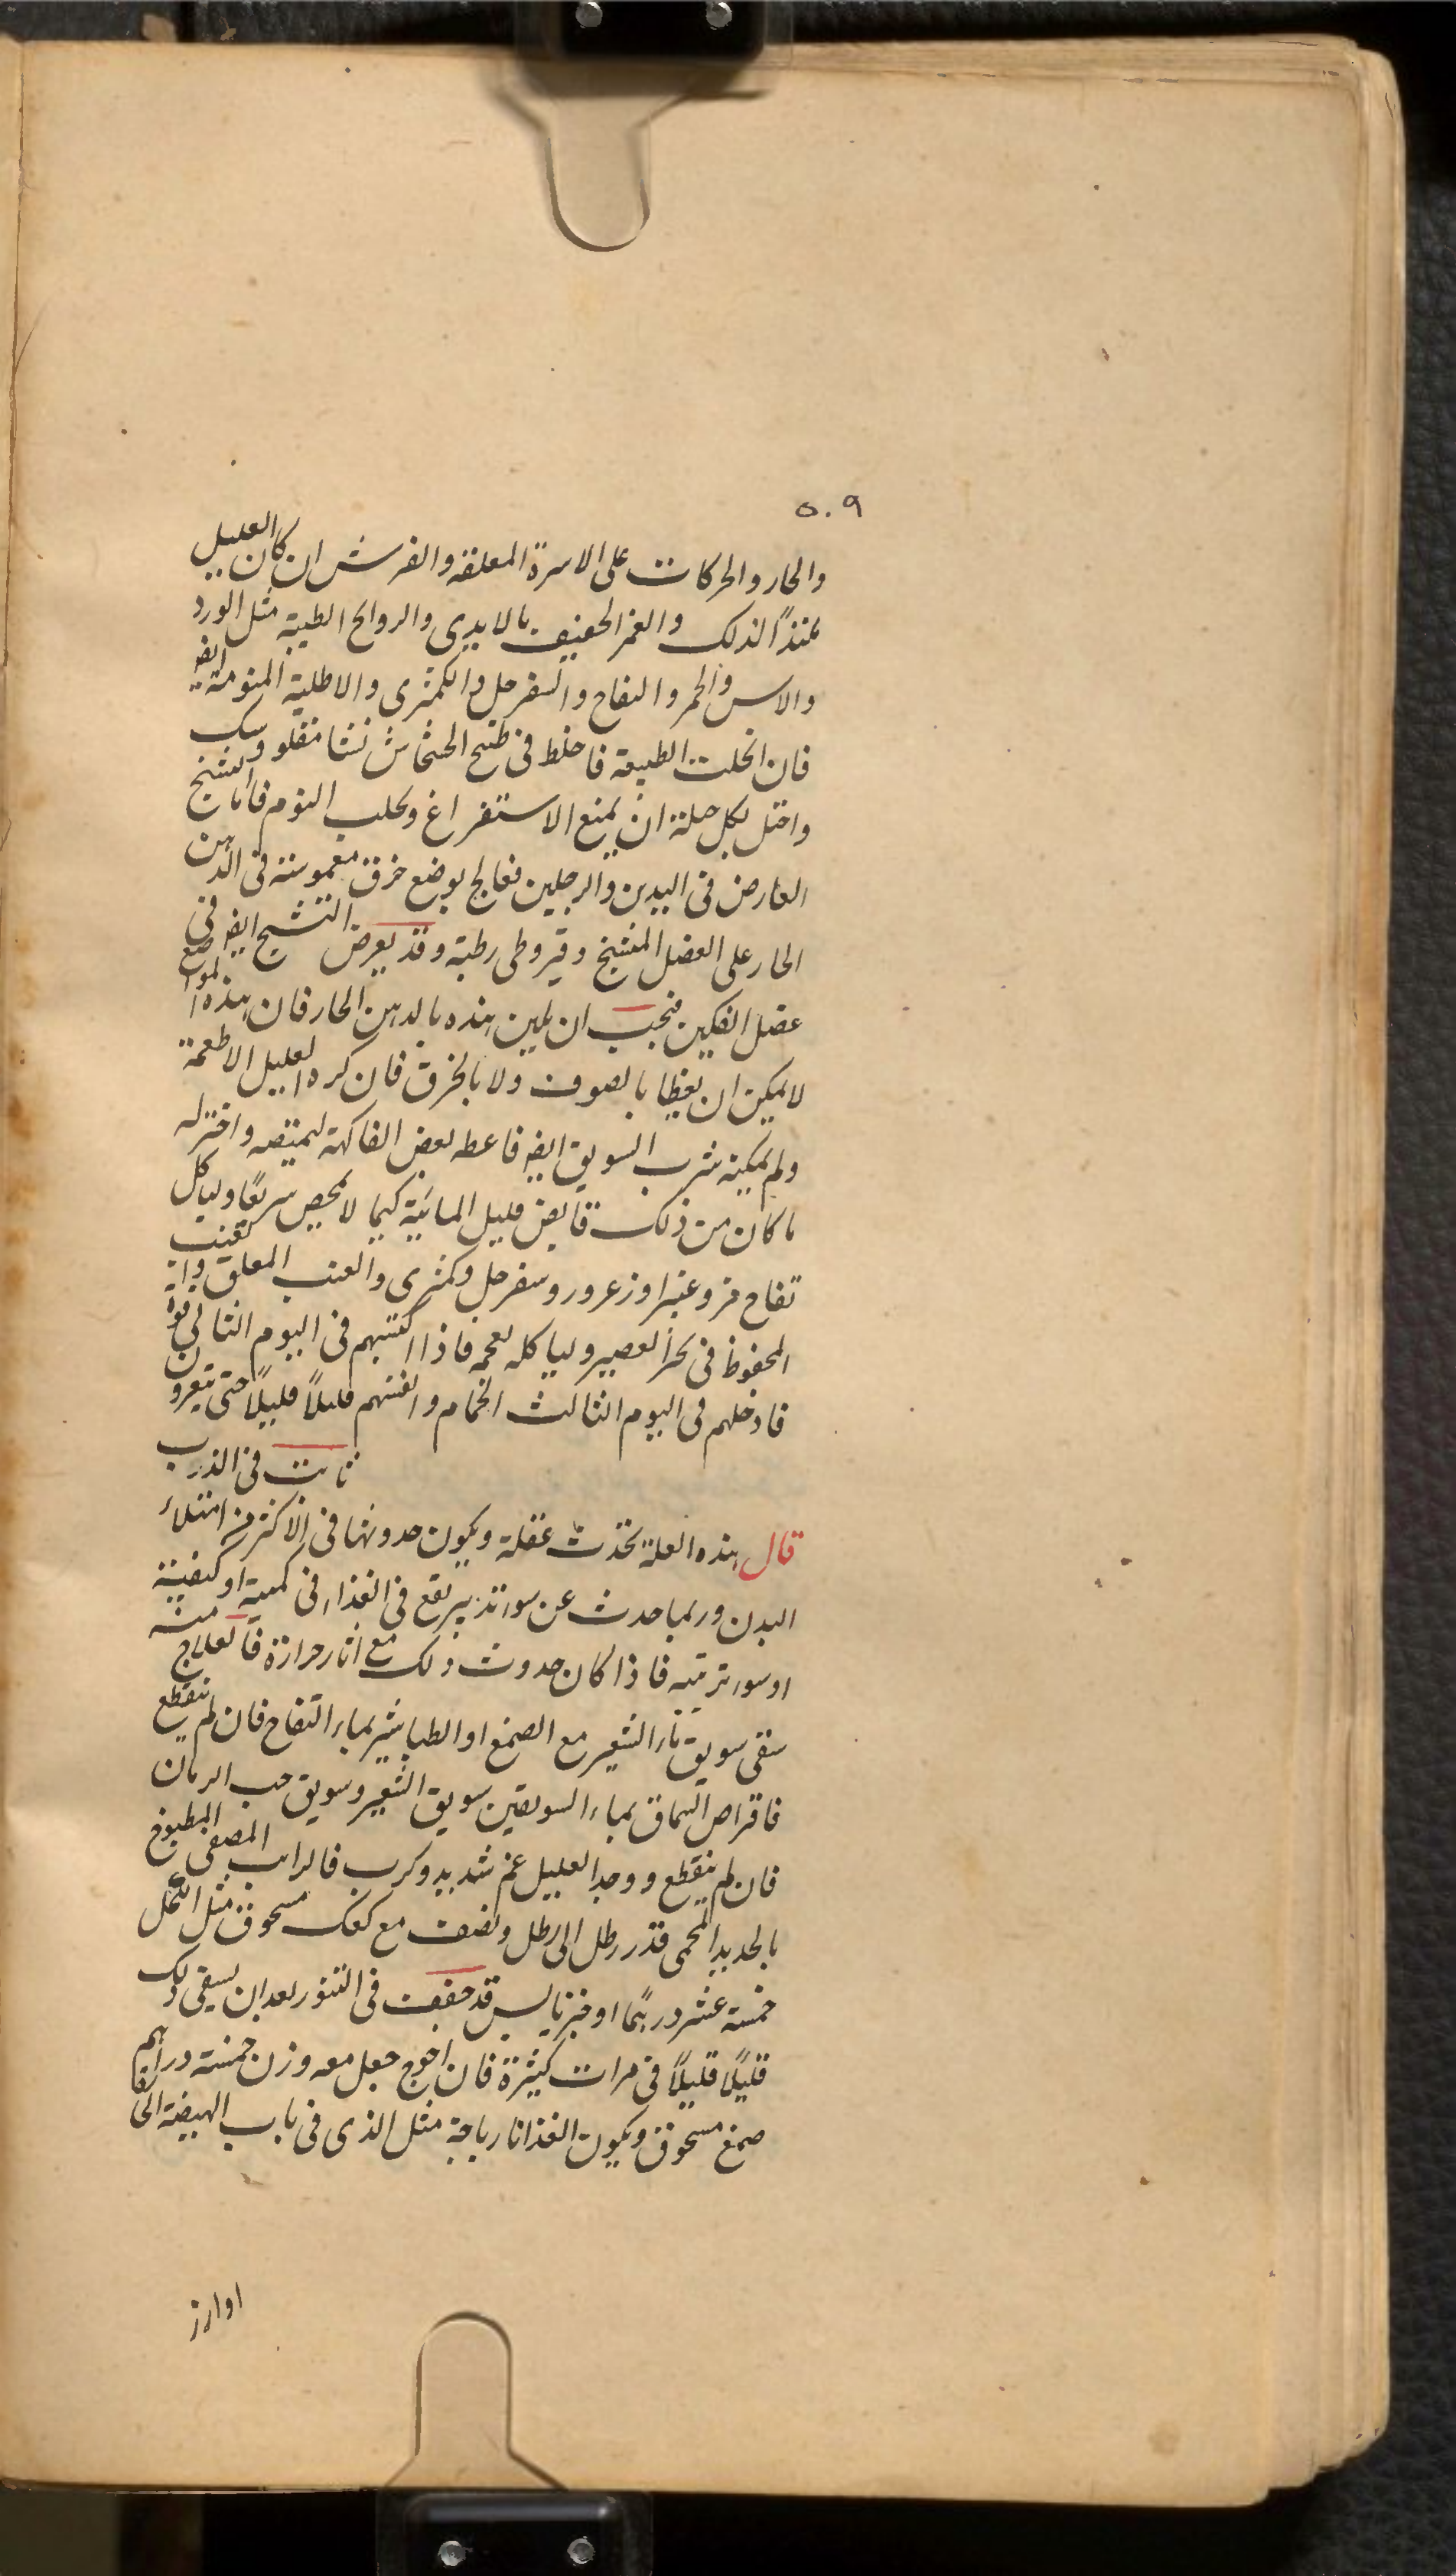 ٥٠٩
والحار والحركات على الاسرة المعلقة والفرش ان كان العليل
ملتذًا لذلك والغمز الخفيف بالايدى والروائح الطيبة مثل الورد
والاس والخمر والتفاح والسفرجل والكمثرى والاطلية المنومة ايضه
فان انحلت الطبيعة فاخلط فى طبيخ الخشخاش نشا مقلو وسك
واحتل بكل حيلة ان يمنع الاستفراغ وتجلب النوم فاما التشنج
العارض فى اليدين والرجلين فعالج بوضع خرق مغموسة فى الدهن
الحار على العضل المتشنج وقيروطى رطبة وقد يعرض التشنج ايضه فى
عضل الفكين فيجب ان يلين هذه بالدهن الحار فان هذه المواضع
لا يمكن ان يغطا بالصوف ولا بالخرق فان كره العليل الاطعمة
ولم يمكنه شرب السويق ايضه فاعطه بعض الفاكهة ليمتصه واختر له
ما كان من ذلك قابض قليل المائية كيما لا يحمض سريعًا ولياكل
تفاح مز وغبيرا وزعرور وسفرجل وكمثرى والعنب المعلق
المحفوظ فى العصير ولياكله لعمه فاذا اكتسبهم فى اليوم الثانى قوة
فادخلهم فى اليوم الثالث الحمام وانعشهم قليلًا قليلًا حتى
ثابت فى الذرب
قال هذه العلة تحدث غفلة ويكون حدوثها فى الاكثر من امتلاء
البدن وربما حدث عن سوء تدبير يقع فى الغذاء فى كميته او كيفيته
او سوء ترتيبه فاذا كان حدوث ذلك مع اثار حرارة فالعلاج منه
سقى سويق الشعير مع الصمغ او الطباشير بماء التفاح فان لم ينقطع
فاقراص السماق بماء السويقين سويق الشعير وسويق حب الرمان
فان لم ينقطع ووجد العليل غم شديد وكرب فالرايب المصفى المطبوخ
بالحديد المحمى قدر رطل الى رطل ونصف مع كعك مسحوق مثل الكحل
خمسة عشر درهمًا او خبز يابس قد جفف فى التنور بعد ان يسقى ذلك
قليلًا قليلًا فى مرات كثيرة فان احوج جعل معه وزن خمسة دراهم
صمغ مسحوق ويكون الغذا نارباجة مثل الذى فى باب الهيضة
او ارز